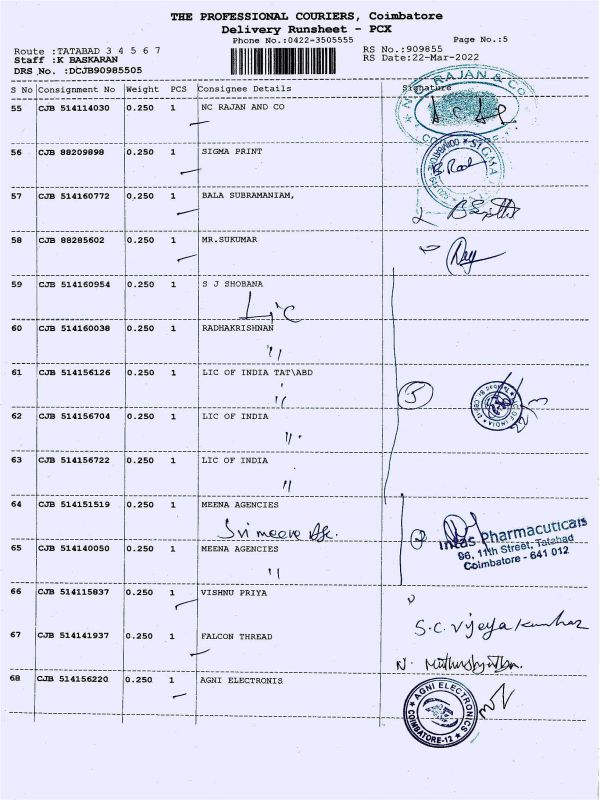 THE PROFESSIONAL COURIERS, Coimbatore
Delivery Runsheet - PCX
Phone No.:0422-3505555
Page No.:5
Route :TATABAD 3 4 5 6 7
RS No.:909855
Staff :K BASKARAN
RS Date:22-Mar-2022
DRS No. :DCJB90985505
S No Consignment No Weight PCS Consignee Details Signature
55 CJB 514114030 0.250 1 NC RAJAN AND CO
RAJAN & CO
56 CJB 88209898 0.250 1 SIGMA PRINT
SIGMA
57 CJB 514160772 0.250 1 BALA SUBRAMANIAM,
58 CJB 88285602 0.250 1 MR.SUKUMAR
59 CJB 514160954 0.250 1 S J SHOBANA
Lic
60 CJB 514160038 0.250 1 RADHAKRISHNAN
"
61 CJB 514156126 0.250 1 LIC OF INDIA TAT\ABD
"
5
62 CJB 514156704 0.250 1 LIC OF INDIA
"
63 CJB 514156722 0.250 1 LIC OF INDIA
"
64 CJB 514151519 0.250 1 MEENA AGENCIES
Sri meena
2
Intas Pharmacuticals
96, 11th Street, Tatabad
Coimbatore - 641 012
65 CJB 514140050 0.250 1 MEENA AGENCIES
"
66 CJB 514115837 0.250 1 VISHNU PRIYA
S.C. Vijeyakumar
67 CJB 514141937 0.250 1 FALCON THREAD
68 CJB 514156220 0.250 1 AGNI ELECTRONIS
AGNI ELECTRONICS
COIMBATORE-12